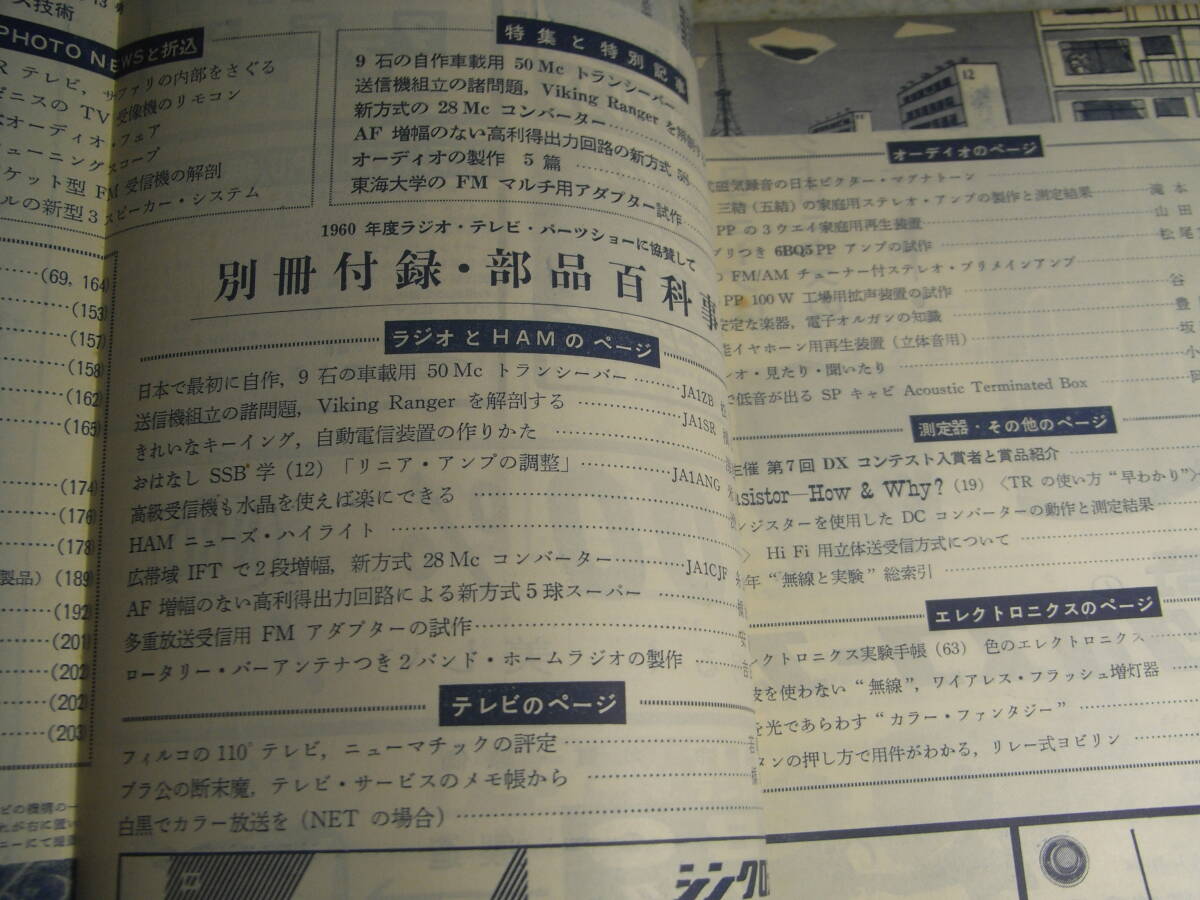 ス技術
PHOTO NEWSと折込
R テレビ, サファリの内部をさぐる
ゼニスの TV 受像機のリモコン
オーディオ・フェア
ューニングスコープ
ケット型 FM 受信機の解剖
ルの新型3スピーカー・システム
(69, 164)
(153)
(157)
(158)
(162)
(165)
(174)
(176)
(178)
製品) (189)
(192)
(201)
(202)
(202)
(203)
特集と特別記事
9 石の自作車載用 50 Mc トランシーバー
送信機組立の諸問題, Viking Ranger を解剖する
新方式の 28 Mc コンバーター
AF 増幅のない高利得出力回路の新方式 5
オーディオの製作 5 篇
東海大学の FM マルチ用アダプター試作
1960 年度ラジオ・テレビ・パーツショーに協賛して
別冊付録・部品百科事
ラジオとHAMのページ
日本で最初に自作, 9 石の車載用 50 Mc トランシーバー JA1ZB
送信機組立の諸問題, Viking Ranger を解剖する JA1SR
きれいなキーイング, 自動電信装置の作りかた
おはなし SSB 学 (12) 「リニア・アンプの調整」 JA1ANG
高級受信機も水晶を使えば楽にできる
HAM ニューズ・ハイライト
広帯域 IFT で2段増幅, 新方式 28 Mc コンバーター JA1CJF
AF 増幅のない高利得出力回路による新方式5球スーパー
多重放送受信用 FM アダプターの試作
ロータリー・バーアンテナつき2バンド・ホームラジオの製作
テレビのページ
フィルコの110°テレビ, ニューマチックの評定
ブラ公の断末魔, テレビ・サービスのメモ帳から
白黒でカラー放送を (NET の場合)
シンクロ
12
オーディオのページ
磁気録音の日本ビクター・マグナトーン
三結(五結)の家庭用ステレオ・アンプの製作と測定結果 滝本
PP の3ウエイ家庭用再生装置 山田
プリつき 6BQ5 PP アンプの試作 松尾
FM/AM チューナー付ステレオ・プリメインアンプ
PP 100 W 工場用拡声装置の試作 谷
安定な楽器, 電子オルガンの知識 豊
イヤホーン用再生装置 (立体音用) 坂
オ・見たり・聞いたり 小
低音が出る SP キャビ Acoustic Terminated Box
測定器・その他のページ
主催 第7回 DX コンテスト入賞者と賞品紹介
nsistor—How & Why? (19) 〈TR の使い方 “早わかり”〉
ンジスターを使用した DC コンバーターの動作と測定結果
〉 Hi Fi 用立体送受信方式について
年 “無線と実験” 総索引
エレクトロニクスのページ
レクトロニクス実験手帳 (63) 色のエレクトロニクス
を使わない “無線”, ワイアレス・フラッシュ増灯器
を光であらわす “カラー・ファンタジー”
タンの押し方で用件がわかる, リレー式ヨビリン